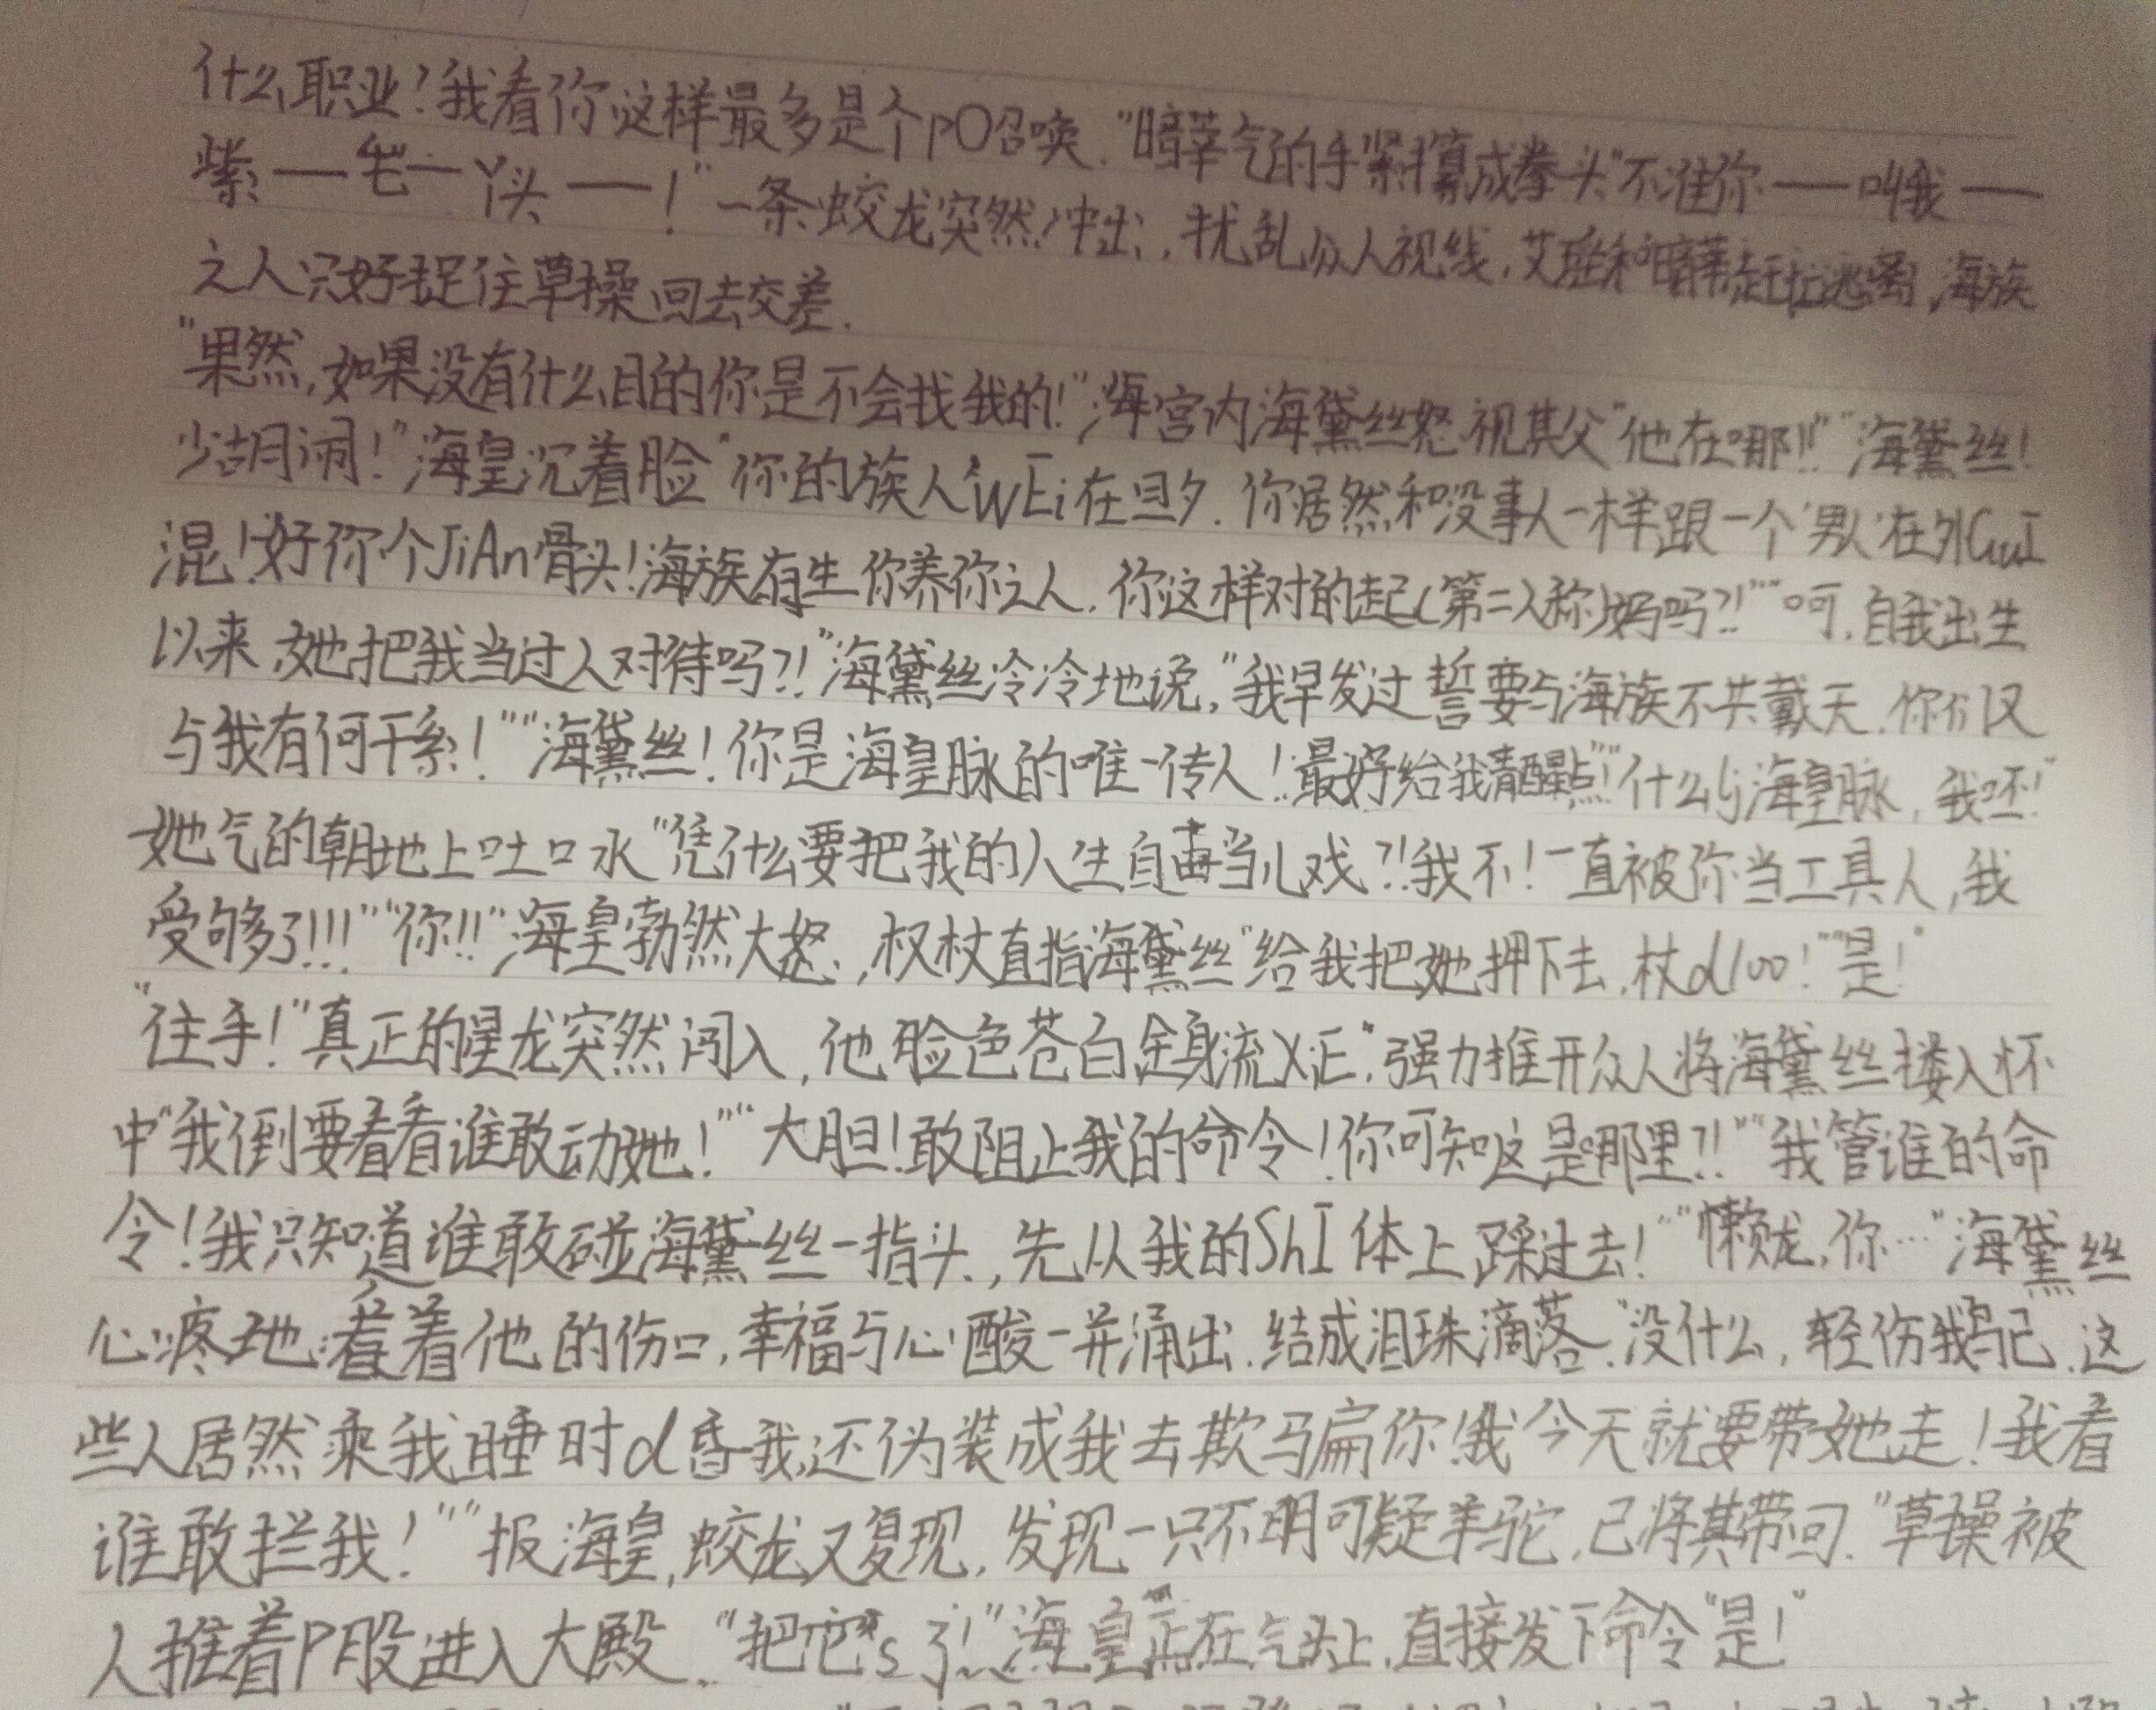 什么职业?我看你这样最多是个pO召唤."暗莘气的手紧攥成拳头"不准你——叫我——
紫——毛——丫头——!"一条蛟龙突然冲出,扰乱众人视线,艾瑶和暗莘赶忙逃离,海族
之人只好捉住草操回去交差.
"果然,如果没有什么目的你是不会找我的!"海宫内海黛丝怒视其父"他在哪!!""海黛丝!
少胡闹!"海皇沉着脸"你的族人WEi在旦夕.你居然和没事人一样跟一个男人在外GuI
混!好你个JiAn骨头!海族有生你养你之人.你这样对的起(第二人称)妈吗?!""呵.自我出生
以来,她把我当过人对待吗?!"海黛丝冷冷地说,"我早发过誓要与海族不共戴天.你们又
与我有何干系!""海黛丝!你是海皇脉的唯一传人!最好给我清醒点!""什么与海皇脉,我呸!"
她气的朝地上吐口水"凭什么要把我的人生自由当儿戏?!我不!一直被你当工具人,我
受够了!!!""你!!"海皇勃然大怒,权杖直指海黛丝"给我把她押下去,杖d100!""是!"
"住手!"真正的星龙突然闯入,他脸色苍白全身流X汇.强力推开众人将海黛丝搂入怀
中"我倒要看看谁敢动她!""大胆!敢阻止我的命令!你可知这是哪里?!""我管谁的命
令!我只知道谁敢碰海黛丝一指头,先从我的ShI体上踩过去!""懒龙,你…"海黛丝
心疼地看着他的伤口,幸福与心酸一并涌出.结成泪珠滴落."没什么,轻伤我已.这
些人居然乘我睡时d昏我,还伪装成我去欺马扁你!我今天就要带她走!我看
谁敢拦我!""报海皇,蛟龙又复现,发现一只不明可疑羊驼,已将其带回."草操被
人推着P股进入大殿."把它s了!"海皇正在气头上,直接发下命令"是!"